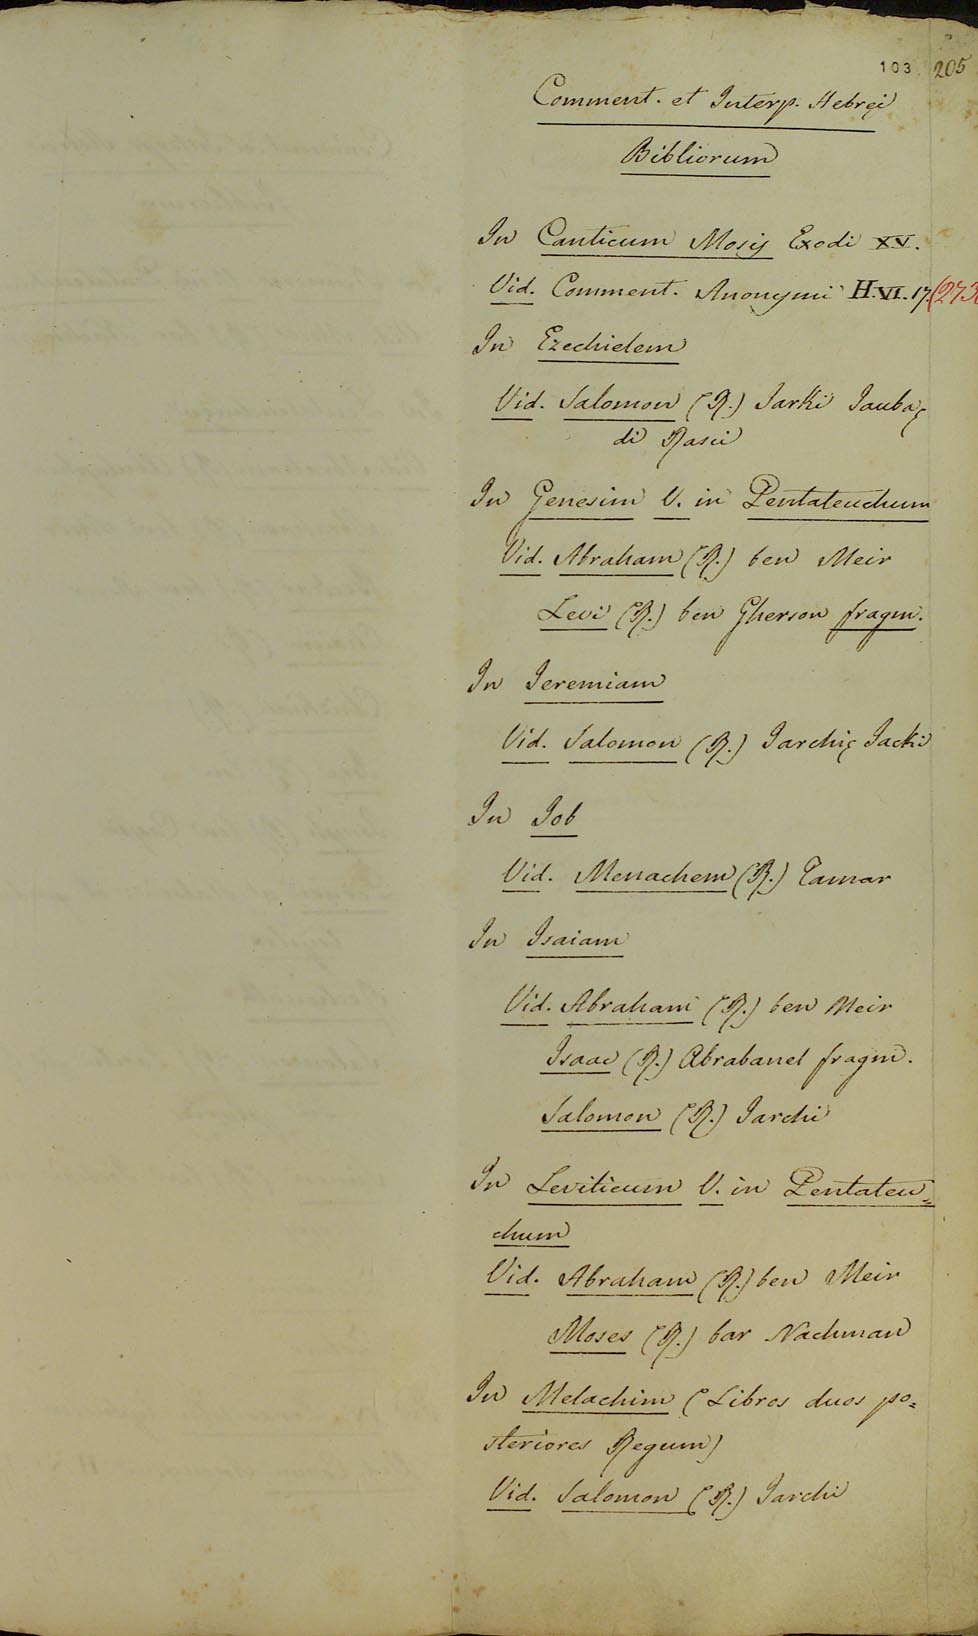 103 205
Comment. et Interp. Hebręi
Bibliorum
In Canticum Mosis Exodi XV.
Vid. Comment. Anonymi H.VI.17.(273
In Ezechielem
Vid. Salomon (R.) Jarki
di Rasci
In Genesim V. in Pentateuchum
Vid. Abraham (R.) ben Meir
Levi (R.) ben Gherson fragm.
In Jeremiam
Vid. Salomon (R.) Jarchi
In Job
Vid. Menachem (R.) Tamar
In Isaiam
Vid. Abraham (R.) ben Meir
Isaac (R.) Abrabanel fragm.
Salomon (R.) Jarchi
In Leviticum V. in Pentateu=
chum
Vid. Abraham (R.) ben Meir
Moses (R.) bar Nachman
In Melachim (Libros duos po=
steriores Regum)
Vid. Salomon (R.) Jarchi